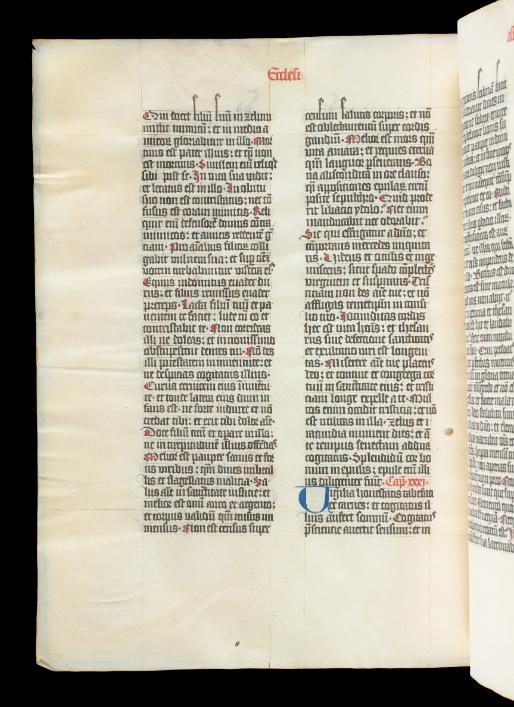 Ecclesi
Qui docet filiū suū in zelum
mittit inimicū: et in medio a
micoꝝ gloriabitur in illo. Mor
tuus est pater illius: et q̄si non
est mortuus. Similem enī reliqͥt
sibi post se. In vita sua vidit:
et letatus est in illo. In obitu
suo non est contristatus: nec cō
fusus est coram inimicis. Reli
quit enī defensorē domus cōtra
inimicos: et amicis reddentē gͣ
ciam. Pro aīabus filioꝝ colli
gabit vulnera sua: et sup oēm
vocem turbabuntur viscera eiꝰ
Equus indomitus euadet du
rus: et filius remissus euadet
preceps. Lacta filium tuū et pa
uentem te faciet: lude cū eo et
contristabit te. Non corrideas
illi ne doleas: et in nouissimo
obstupescent dentes tui. Nō des
illi potestatem in iuuentute: et
ne despicias cogitatus illius.
Curua ceruicem eius in iuuētu
te: et tunde latera eius dum in
fans est: ne forte induret et nō
credat tibi: et erit tibi dolor aīe
Doce filiū tuū et operare in illo:
ne in turpitudinem illius offēdas
Melior est pauper sanus et for
tis viribus: qͣm diues imbecil
lis et flagellatus malicia. Sa
lus aīe in sanctitate iusticie: et
melior est omī auro et argento:
et corpus validū qͣm census im
mensus. Non est census super
censum salutis corporis: et nō
est oblectamentū super cordis
gaudiū. Melior est mors qͣm
vita amara: et requies eterna
qͣm languor pseuerans. Bo
na abscondita in ore clauso:
qͣsi appositiones epularū circū
posite sepulchro. Quid prode
rit libatio ydolo? Nec enim
manducabit nec odorabit.
Sic qui effugatur a dño: et
cōportans mercedes iniquita
tis. Videns oculis et inge
miscens: sicut spado cōplectēs
virginem et suspirans. Tris
ticiam non des aīe tue: et nō
affligas temetipm in consi
lio tuo. Iocunditas cordis
hec est vita hoīs: et thesau
rus sine defectione sanctitatis
et exultatio viri est longeui
tas. Miserere aīe tue placens
deo: et contine et congrega cor
tuū in sanctitate eius: et tristi
ciam longe expelle a te. Mul
tos enim occidit tristicia: et nō
est vtilitas in illa. Zelus et i
racundia minuent dies: et an̄
te tempus senectam adducēt
cogitatus. Splendidū cor bo
num in epulis: epule enī illi
us diligenter fiūt. Cap. xxxi.
Vigilia honestatis tabefaci
et carnes: et cogitatus il
lius aufert somnū. Cogitatus
prescientie auertit sensum: et in